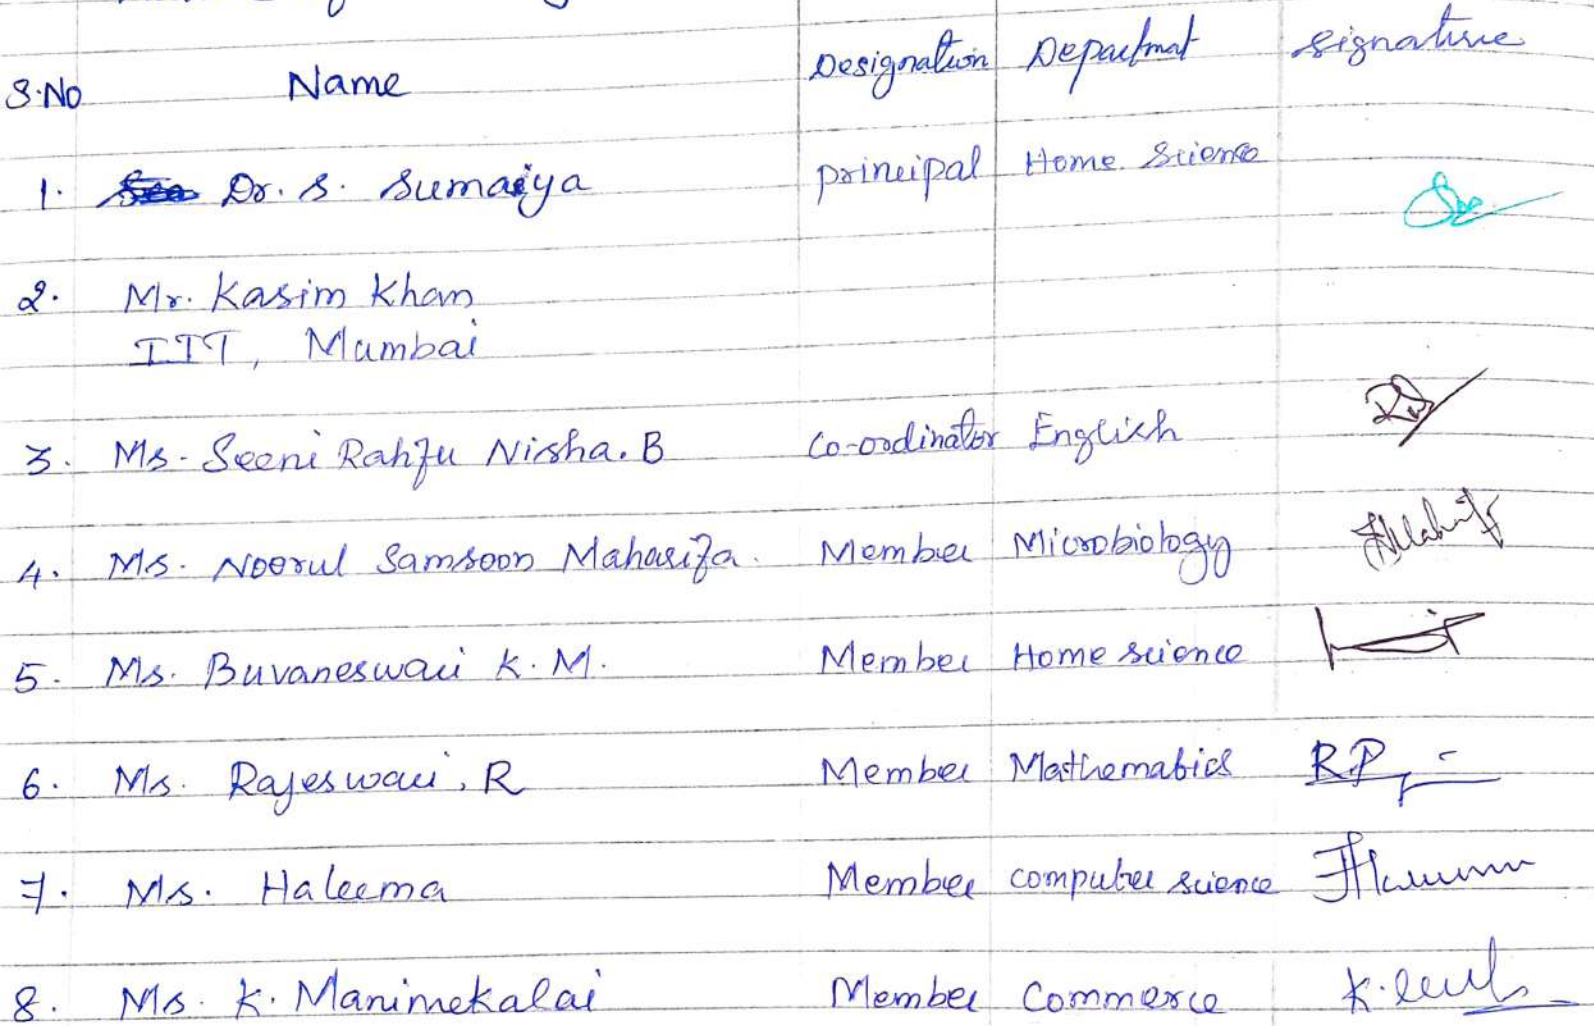 S.No Name Designation Department signature
1. Dr. S. Sumaiya principal Home Science
2. Mr. Kasim Khan
IIT, Mumbai
3. Ms. Seeni Rahfu Nisha. B Co-ordinator English
4. Ms. Noorul Samsoon Maharifa. Member Microbiology
5. Ms. Buvaneswari K. M. Member Home science
6. Ms. Rajeswari. R Member Mathematics RP
7. Ms. Haleema Member computer science
8. Ms. K. Manimekalai Member Commerce